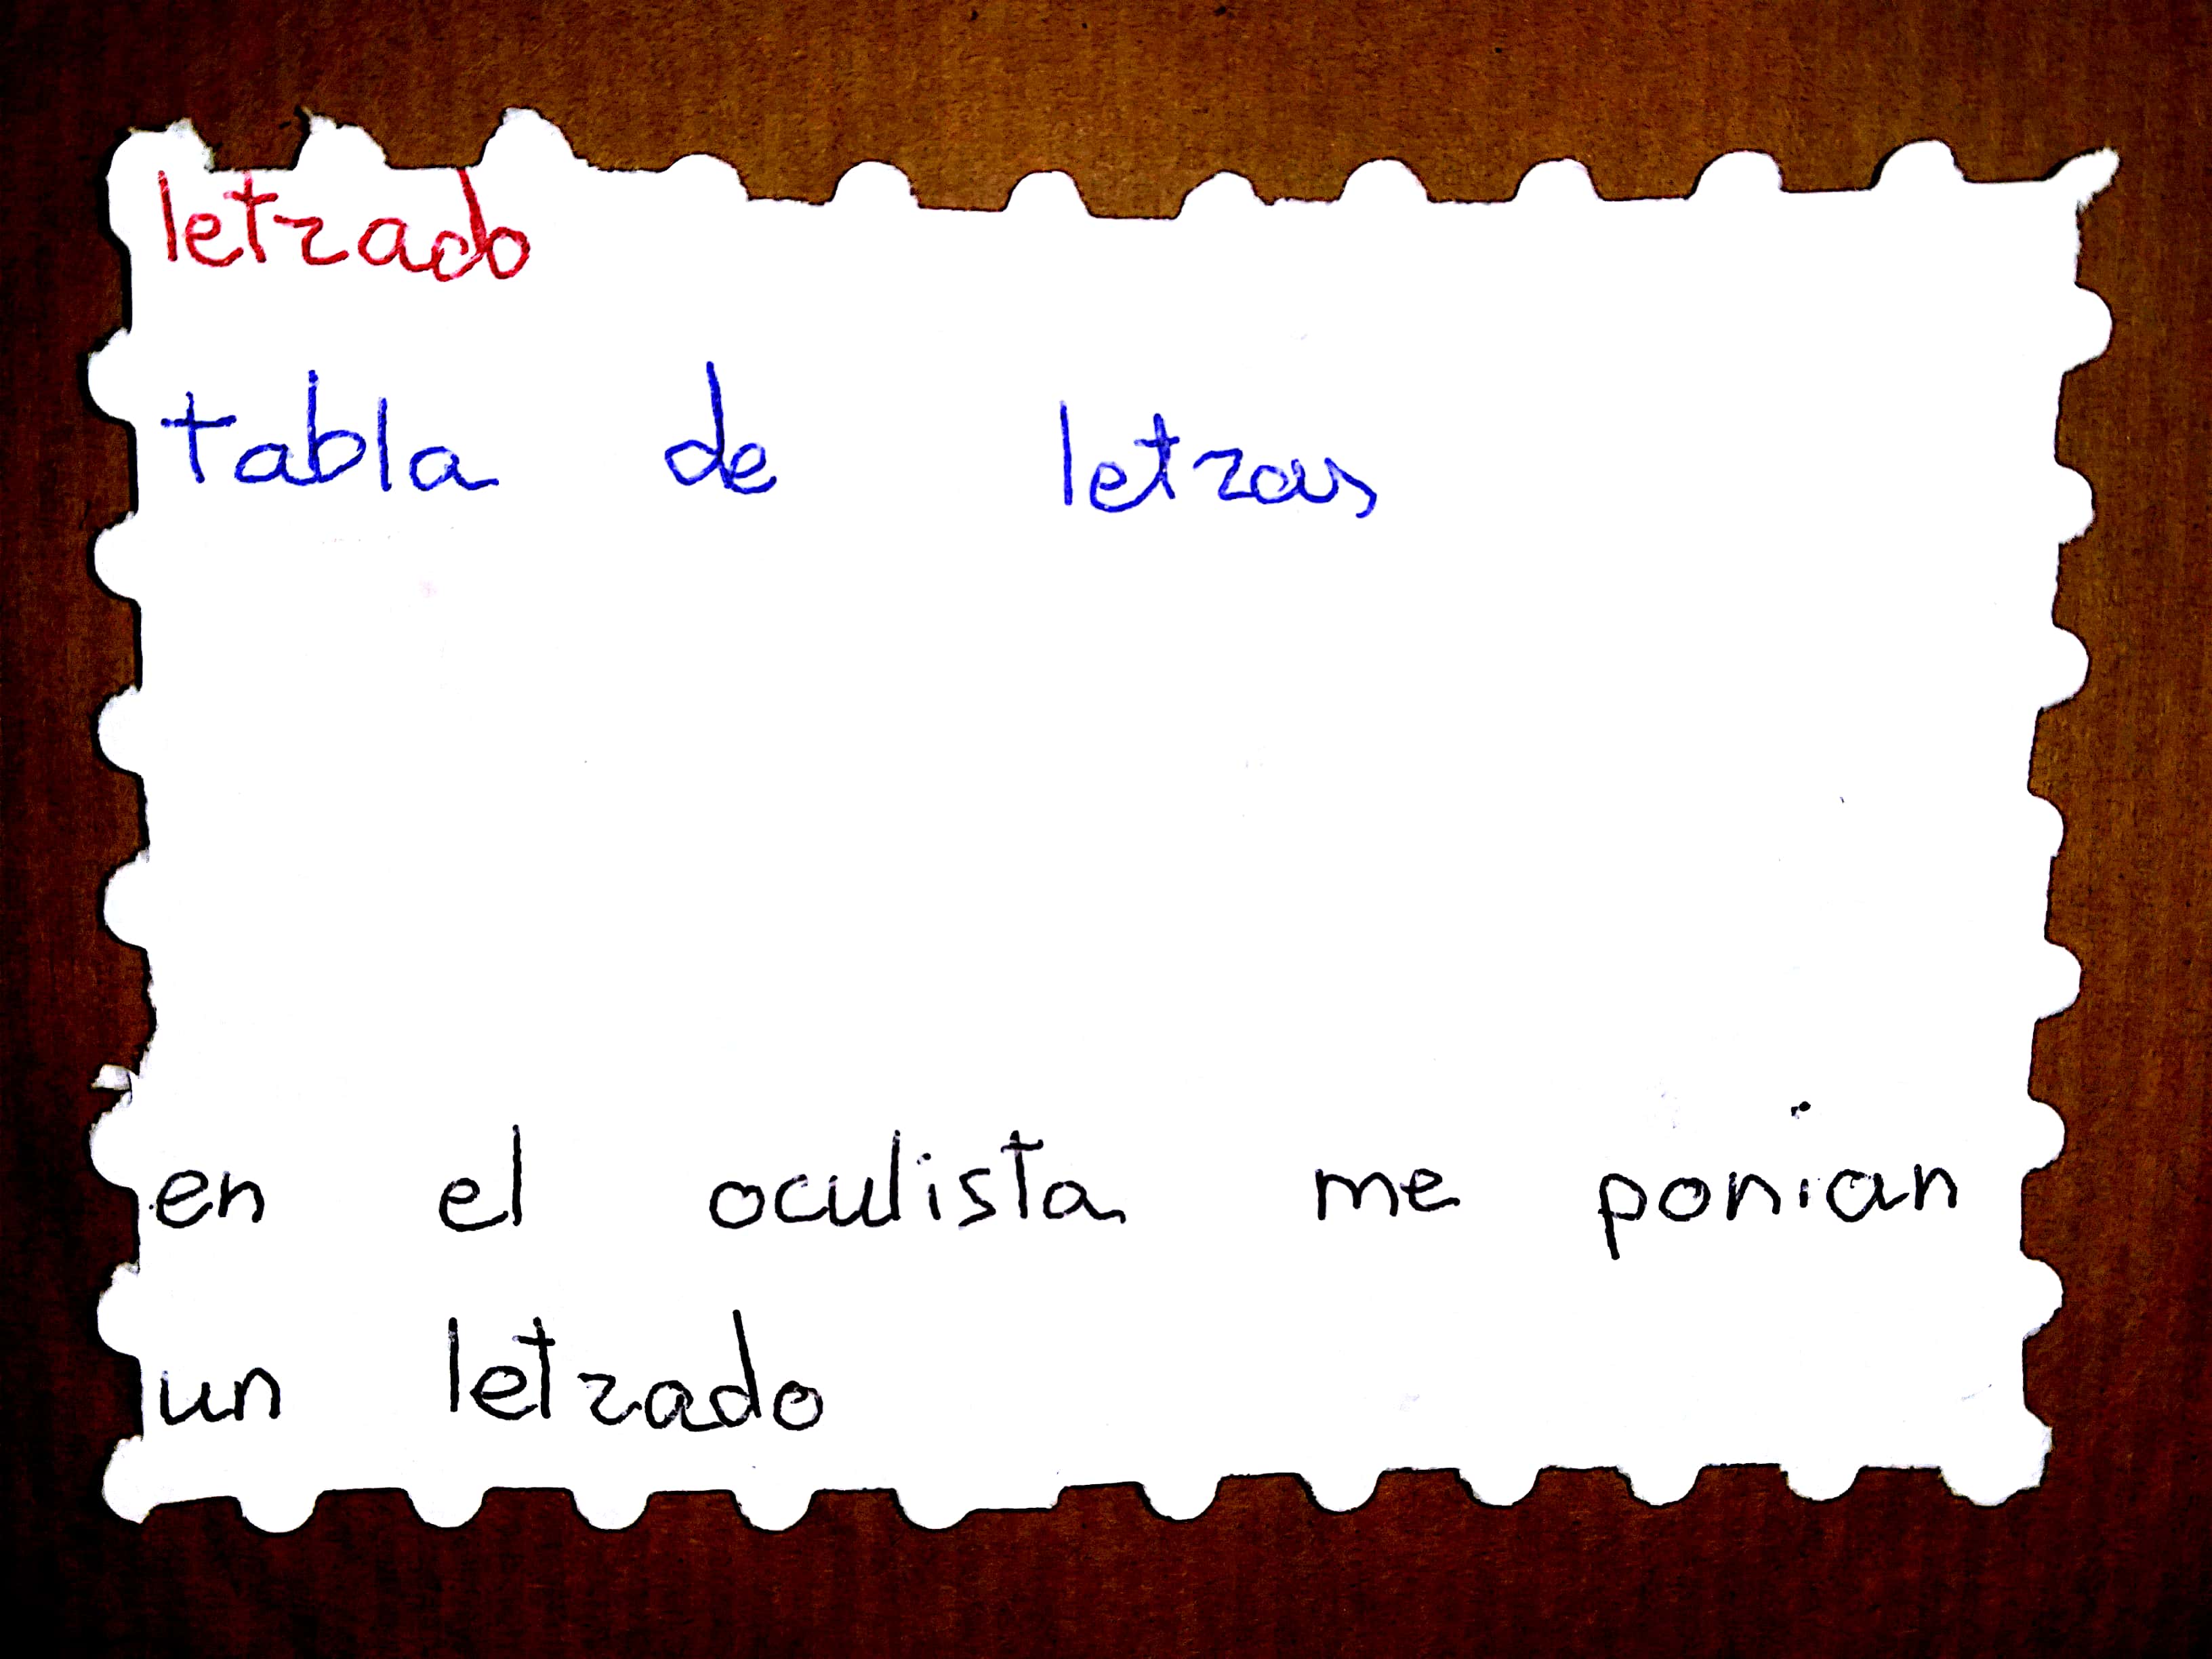 letrado
tabla de letras
en el oculista me ponian
un letrado